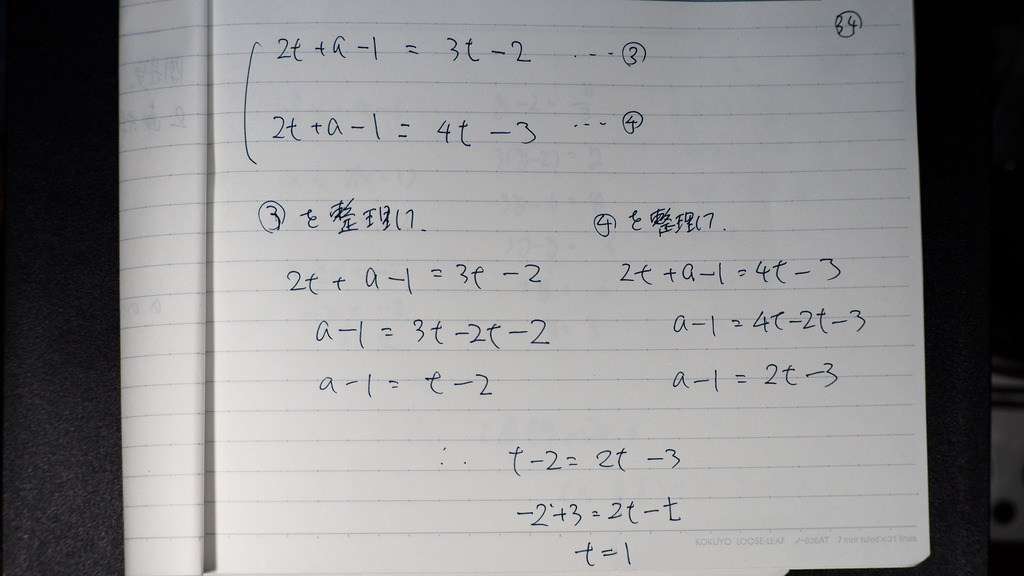 34
2t + a - 1 = 3t - 2 ... ③
2t + a - 1 = 4t - 3 ... ④
③ を整理して. ④ を整理して.
2t + a - 1 = 3t - 2 2t + a - 1 = 4t - 3
a - 1 = 3t - 2t - 2 a - 1 = 4t - 2t - 3
a - 1 = t - 2 a - 1 = 2t - 3
∴ t - 2 = 2t - 3
-2 + 3 = 2t - t
t = 1
KOKUYO LOOSE-LEAF ノ-836AT 7 mm ruled × 31 lines